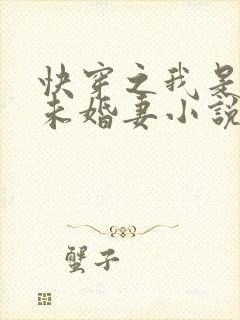 快穿之我是
未婚妻小説
蟹子